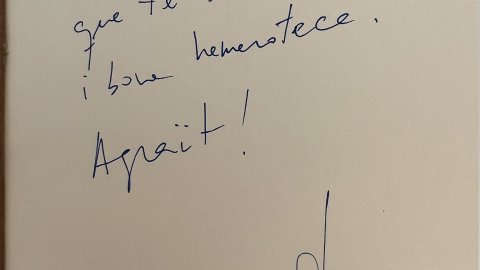 que te
i bona hemeroteca.
Agraït!